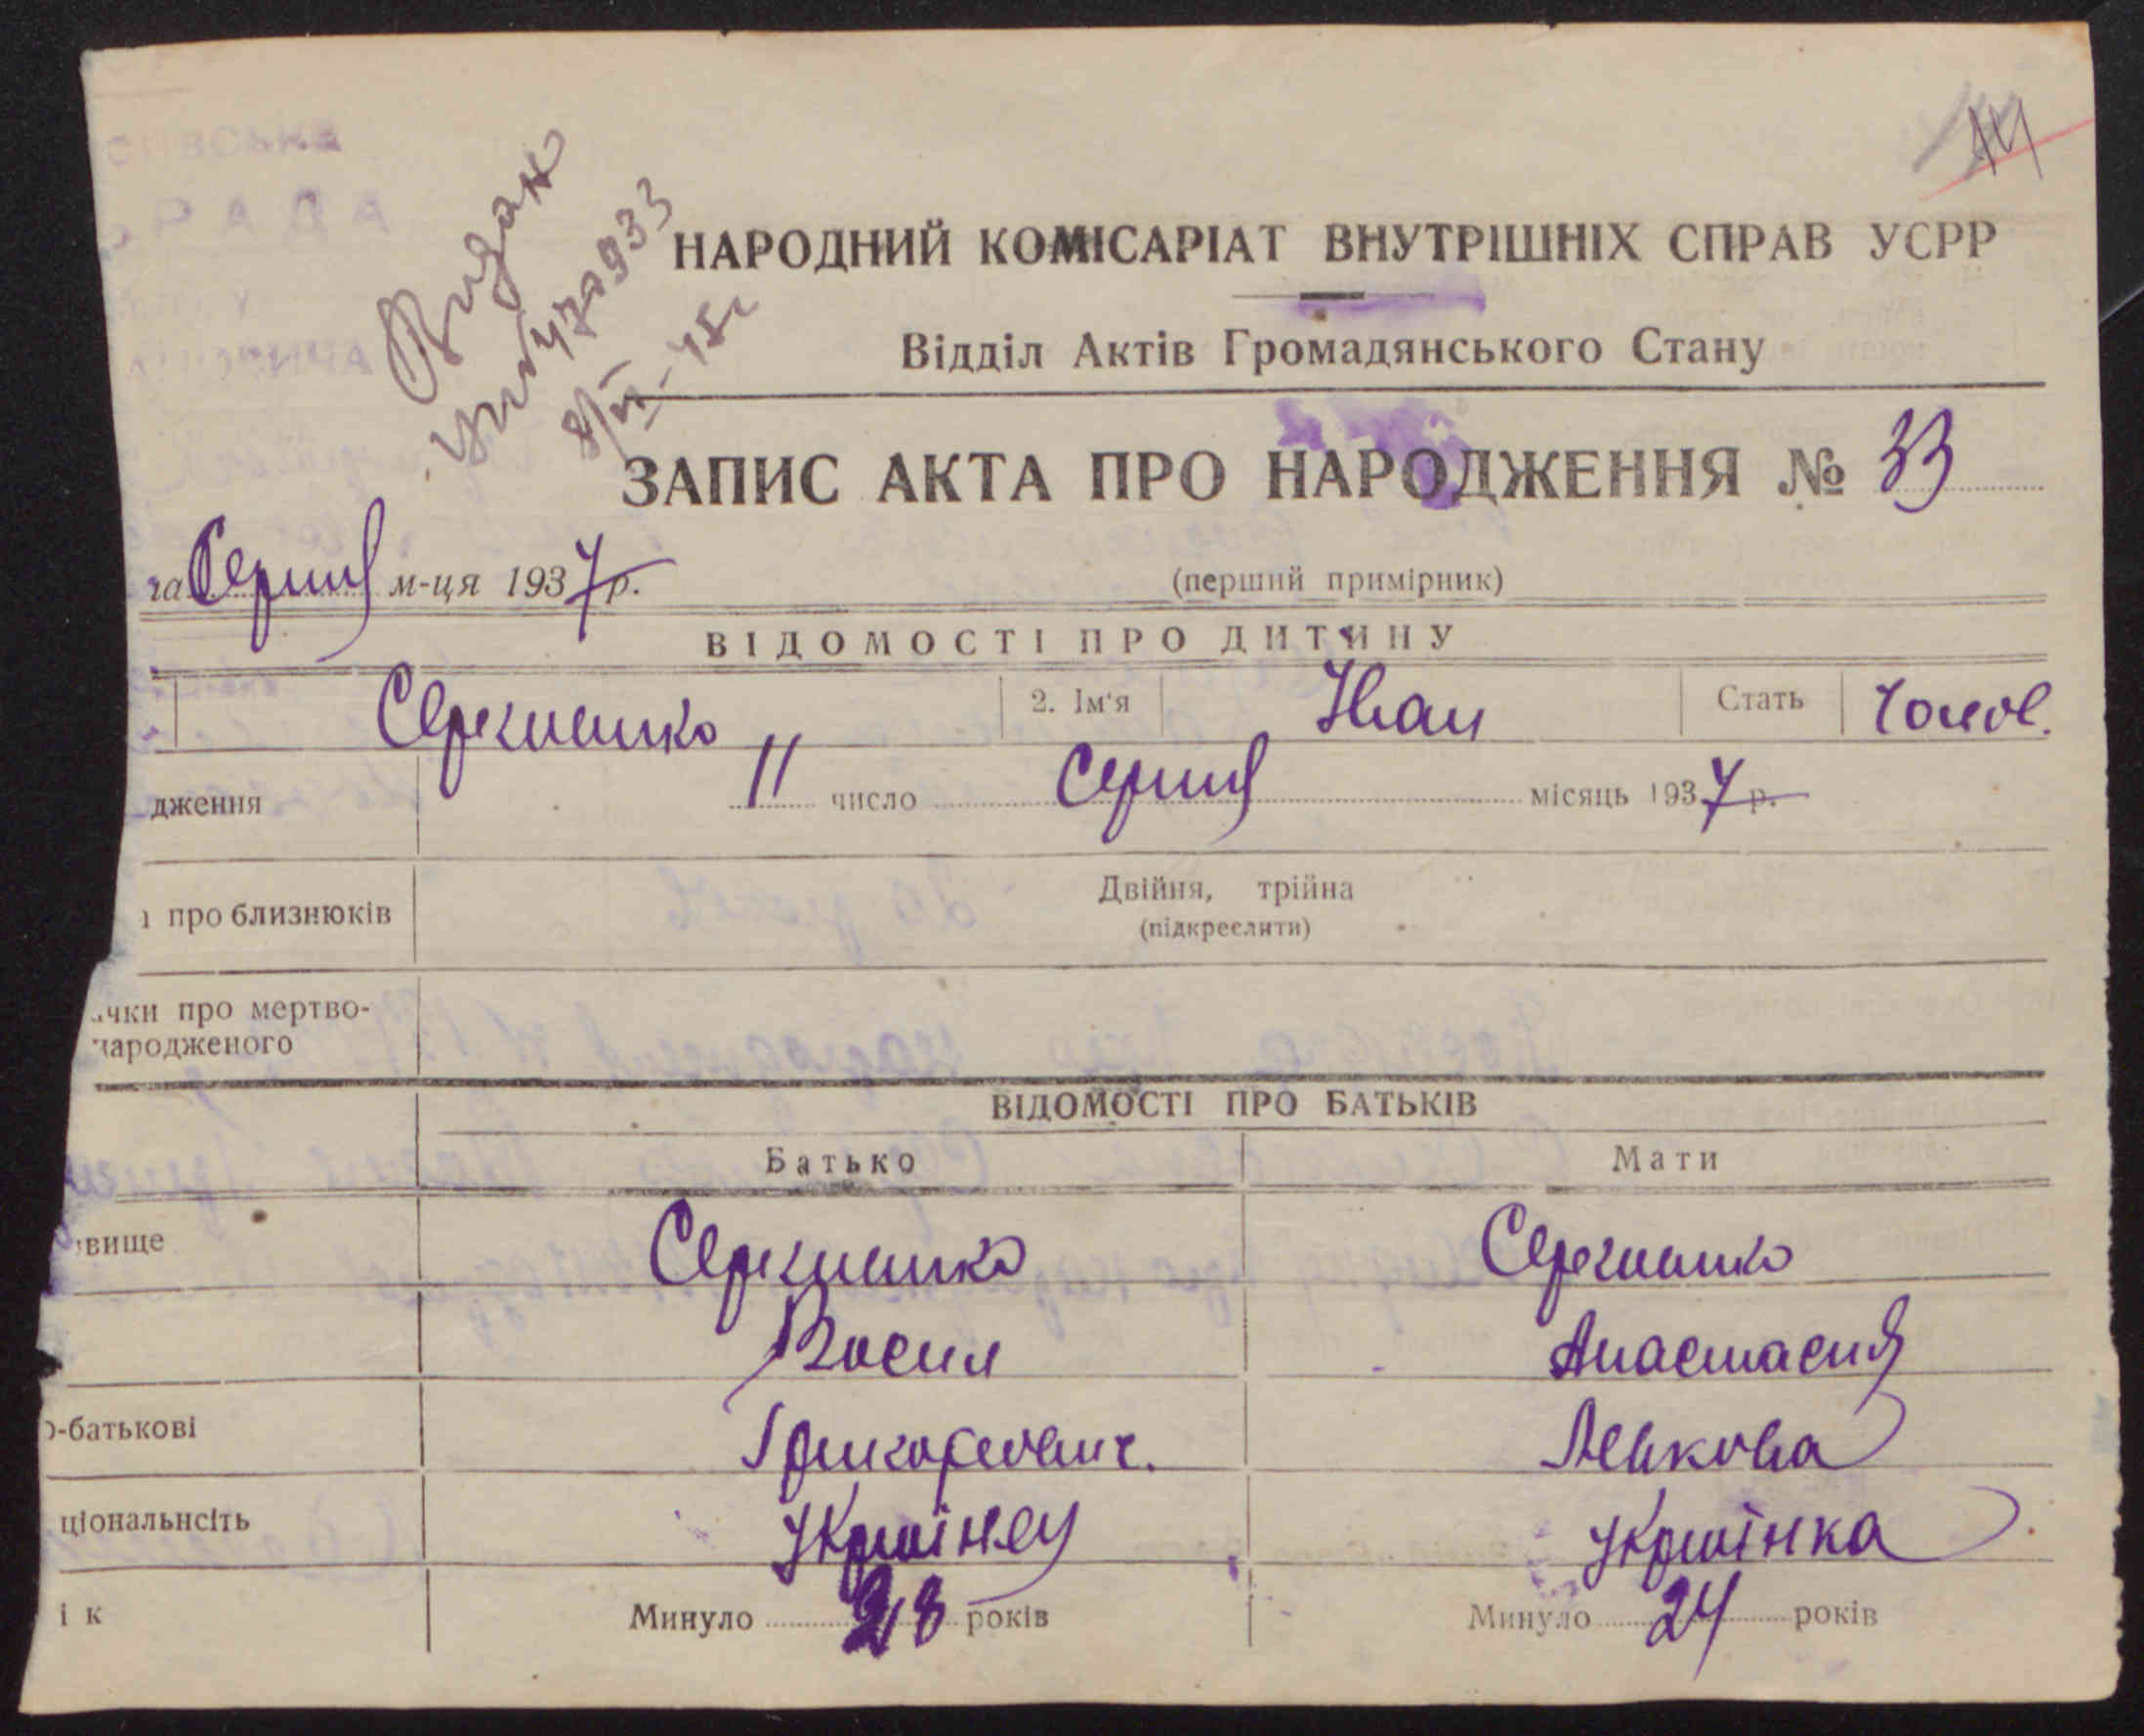 РАДА
Видан
8/VI-45г
НАРОДНИЙ КОМІСАРІАТ ВНУТРІШНІХ СПРАВ УСРР
Відділ Актів Громадянського Стану
ЗАПИС АКТА ПРО НАРОДЖЕННЯ № 33
Серпня м-ця 1937р.
(перший примірник)
ВІДОМОСТІ ПРО ДИТИНУ
2. Ім'я Іван Стать Чолов.
дження 11 число Серпня місяць 1937 р.
про близнюків Двійня, трійна
(підкреслити)
чки про мертво-
народженого
ВІДОМОСТІ ПРО БАТЬКІВ
Батько Мати
звище
Васил Анастасия
о-батькові Григорєвич. Левкова
ціональнсіть Українец Українка
ік Минуло 28 років Минуло 24 років